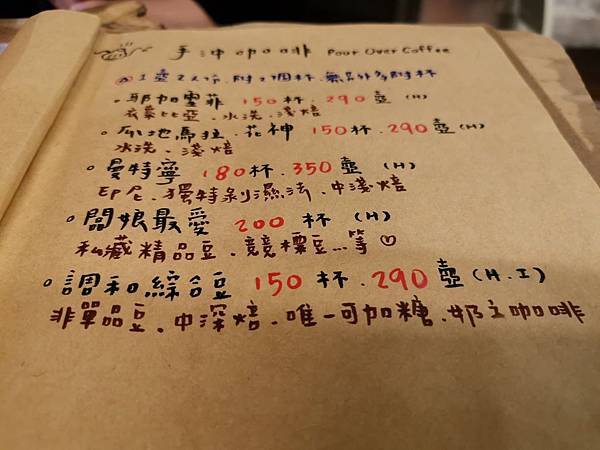 手沖咖啡 Pour Over Coffee
1壺2人份.附2個杯.無另外多附杯
耶加雪菲 150杯.290壺(H)
衣索比亞.水洗.淺焙
瓜地馬拉.花神 150杯.290壺(H)
水洗.淺焙
曼特寧 180杯.350壺(H)
印尼.獨特剝濕法.中淺焙
闆娘最愛 200杯(H)
私藏精品豆.競標豆...等♡
調和綜合豆 150杯.290壺(H.I)
非單品豆.中深焙.唯一可加糖.奶之咖啡